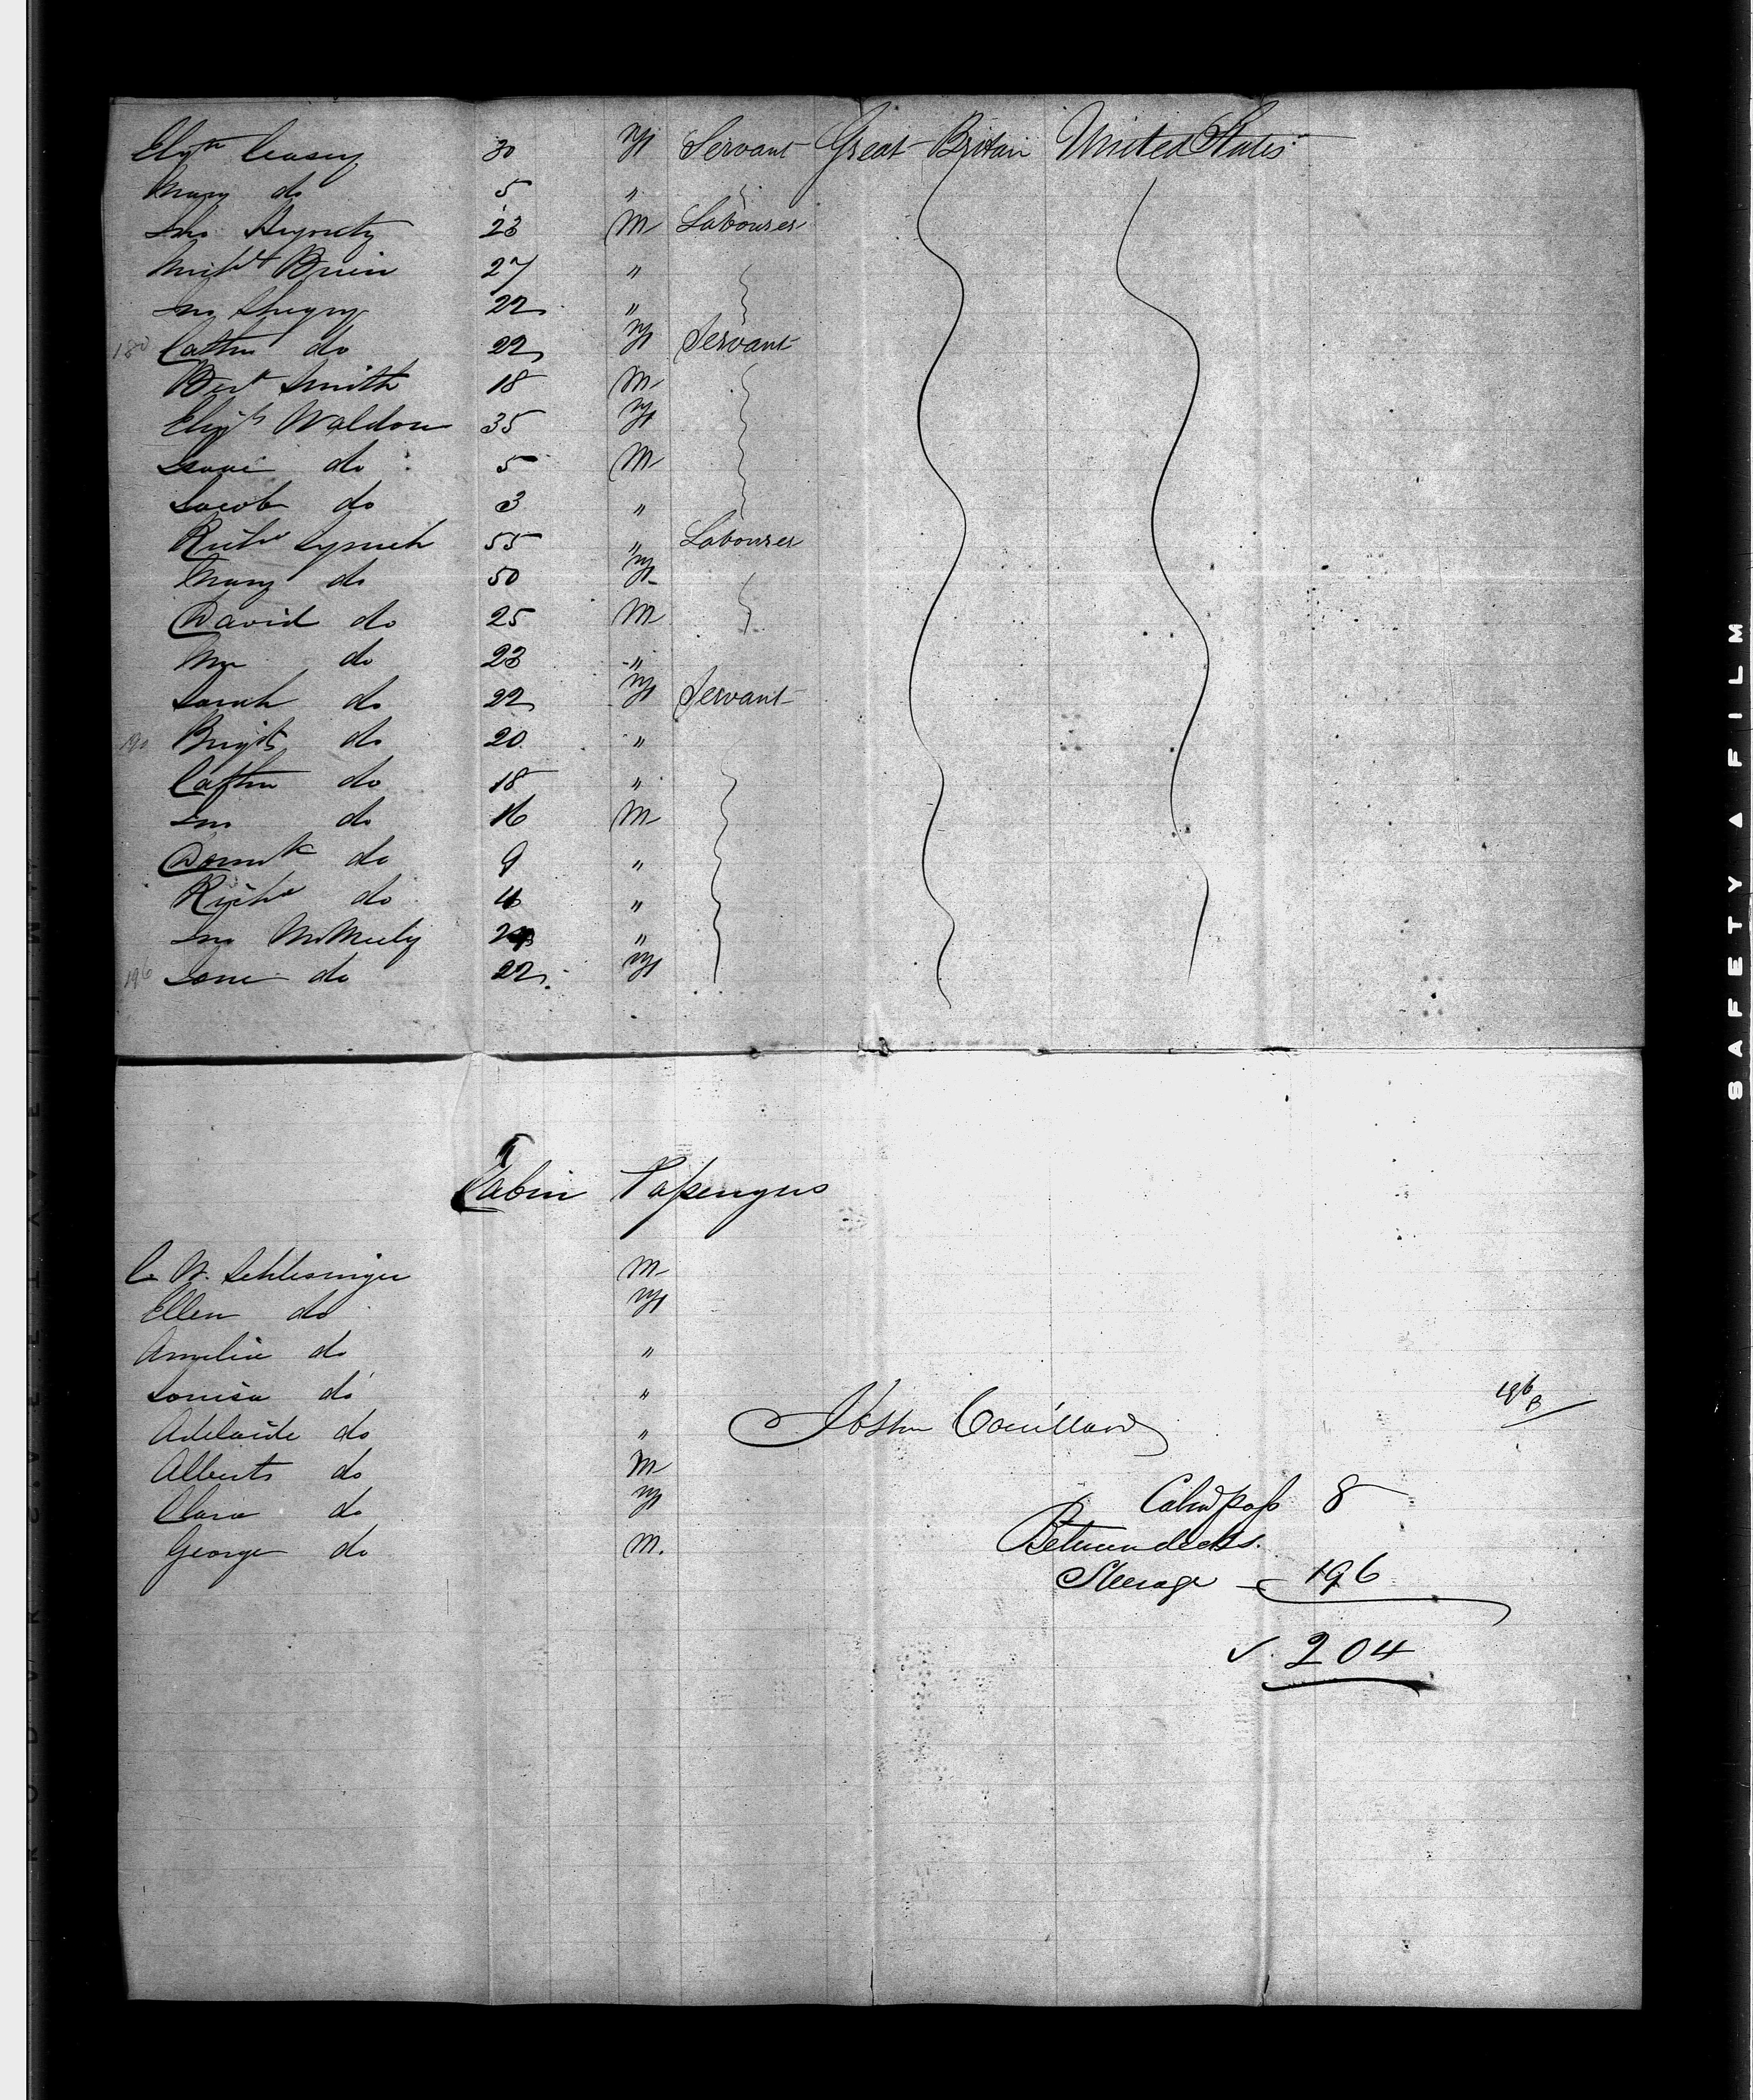 Elizth Ceasey 30 Servant Great Britain United States
Mary do 5 "
Jno 23 M Labourer
Michl Brien 27 "
Jno 22 "
180 Cathn do 22 Servant
Smith 18 M
Elizth Waldon 35
Isaac do 5 M
Jacob do 3 "
Richd Lynch 55 " Labourer
Mary do 50
David do 25 M
Wm do 23 "
Sarah do 22 Servant
190 Bridgt do 20 "
Cathn do 18 "
Jno do 16 M
Domk do 9 "
Richd do "
Jno "
196 Jane do 22
Cabin Passengers
C. W. Schlesinger M
Ellen do
Amelia do "
Louisa do "
196
8
Adelaide do "
Couillard
Albert do M
Clara do
Cabin pass 8
George do M.
Between decks.
Steerage 196
✓ 204
SAFETY ▲ FILM